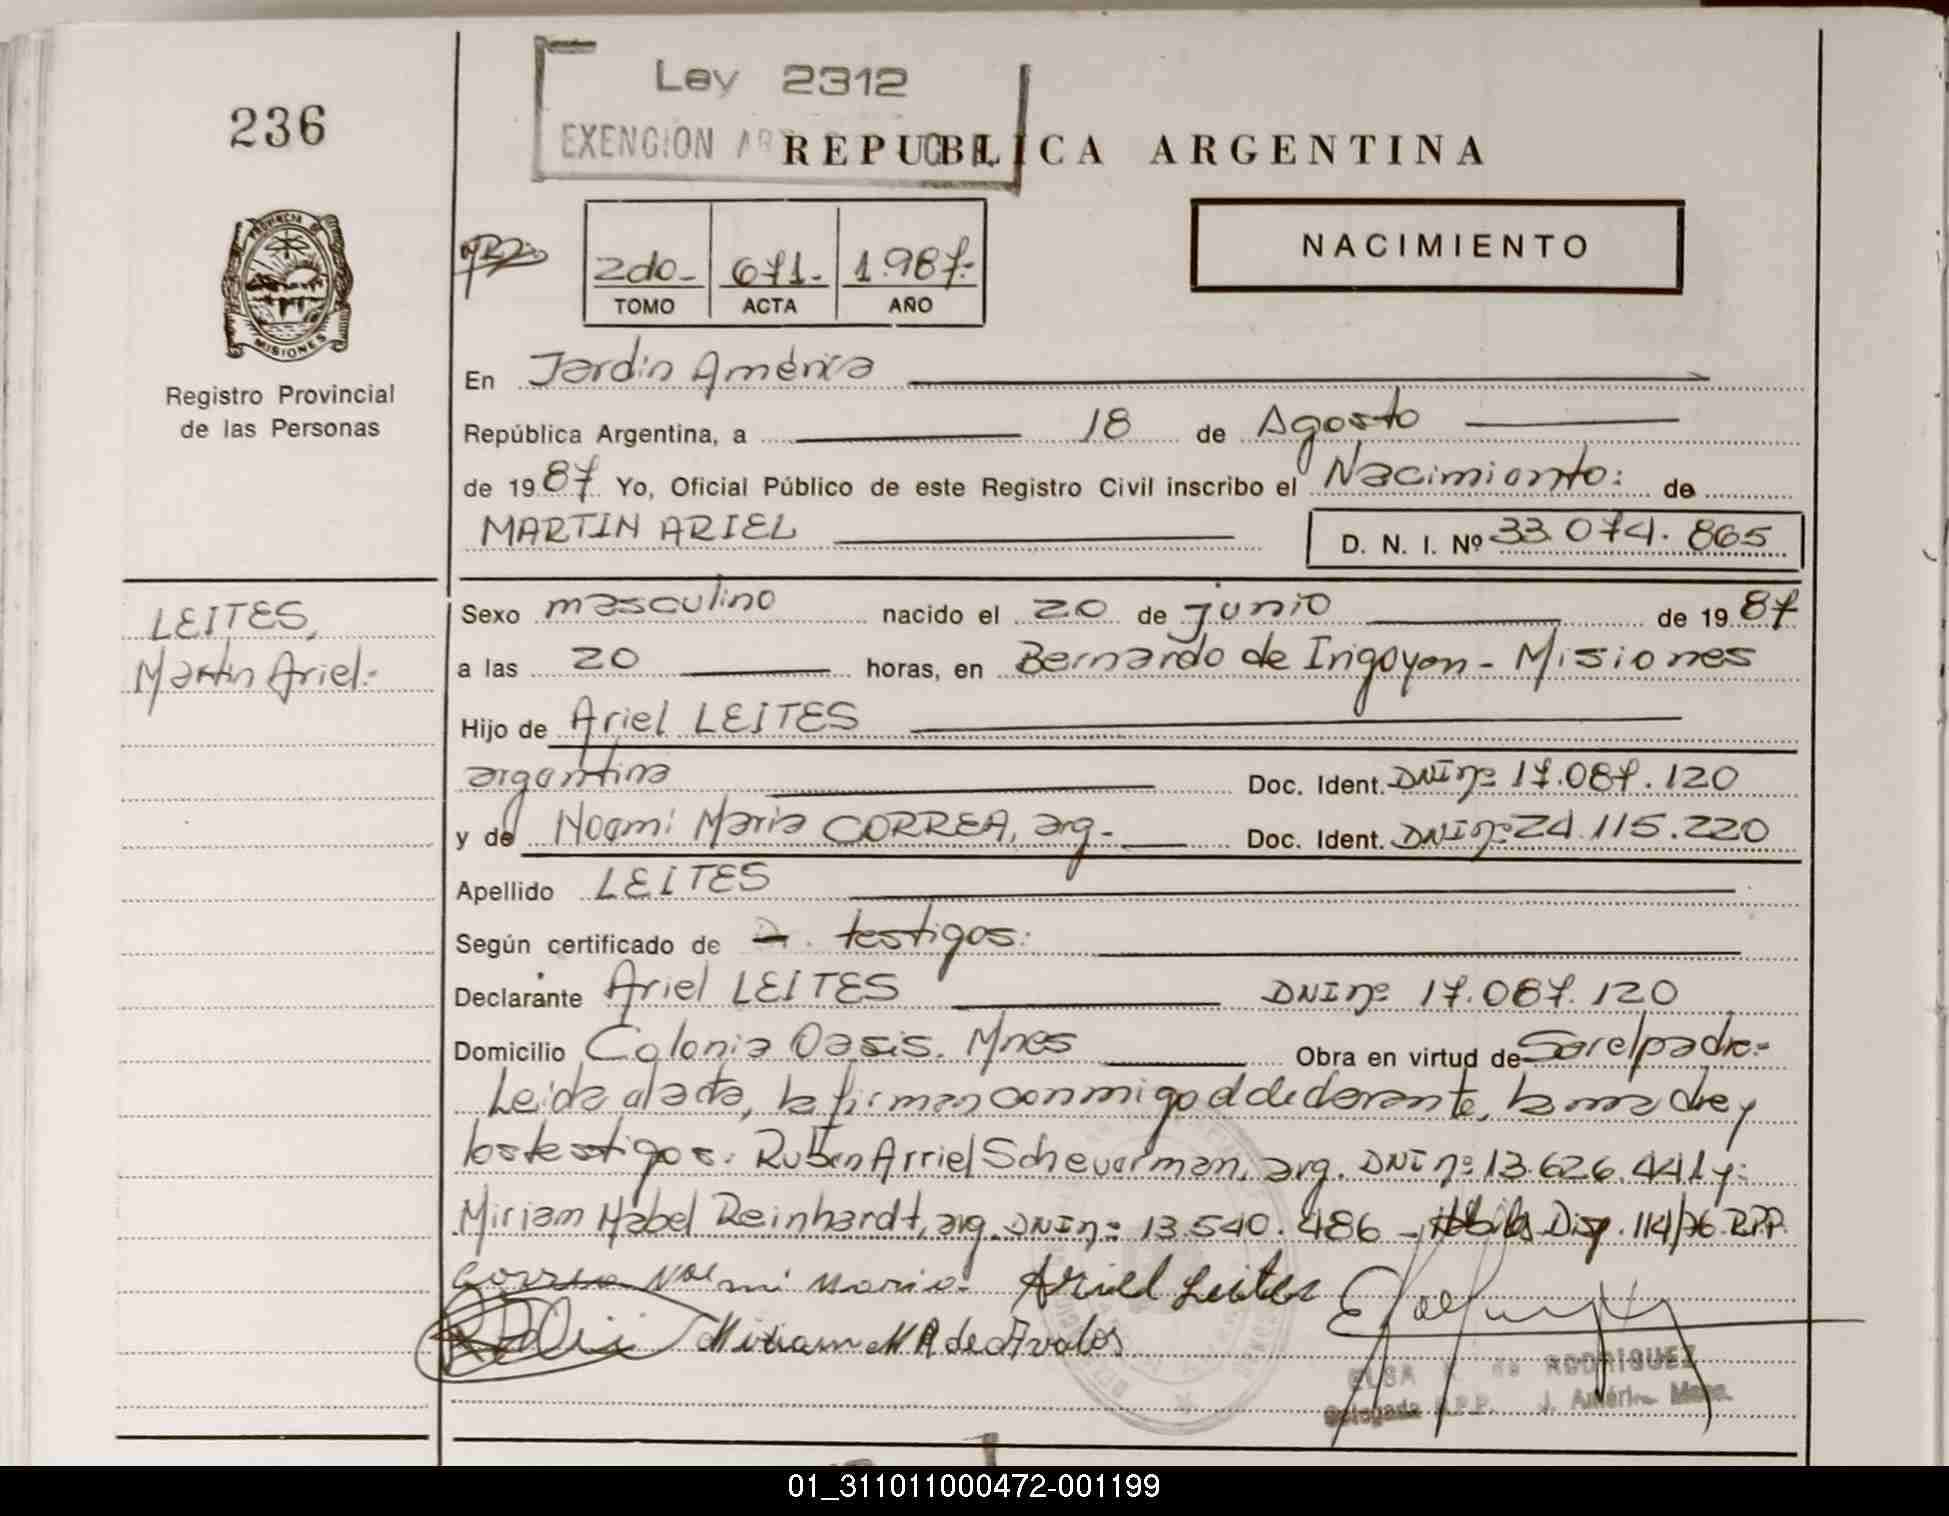 Ley 2312
236
EXENCION
REPUBLICA ARGENTINA
PROVINCIA DE
MISIONES
NACIMIENTO
2do.- 671.- 1.987.-
TOMO ACTA AÑO
Registro Provincial
de las Personas
En Jardín América
República Argentina, a 18 de Agosto
de 1987 Yo, Oficial Público de este Registro Civil inscribo el Nacimiento: de
MARTIN ARIEL D. N. I. Nº 33.074.865
LEITES,
Martín Ariel.-
Sexo masculino nacido el 20 de junio de 1987
a las 20 horas, en Bernardo de Irigoyen - Misiones
Hijo de Ariel LEITES
argentina Doc. Ident. DNI nº 17.087.120
y de Noemi Maria CORREA, arg.- Doc. Ident. DNI nº 24.115.220
Apellido LEITES
Según certificado de testigos:
Declarante Ariel LEITES DNI nº 17.087.120
Domicilio Colonia Oasis. Mnes Obra en virtud de Ser el padre.-
Leida el acta, la firman conmigo el declarante, la madre y
los testigos: Rubén Arriel Scheuerman, arg. DNI nº 13.626.441 y:
Miriam Mabel Reinhardt, arg. DNI nº 13.540.486 - Habilit Disp. 114/76 R.P.P.
Correa Noemi Maria. Ariel Leites
Miriam M R de Avalos
ELSA de RODRIGUEZ
Delegada R.P.P. J. América Mnes.
01_311011000472-001199